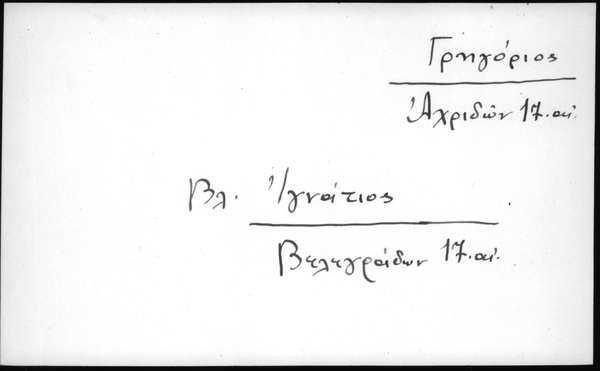 Γρηγόριος
Ἀχριδῶν 17. αἰ.
Βλ. Ἰγνάτιος
Βελεγράδων 17. αἰ.